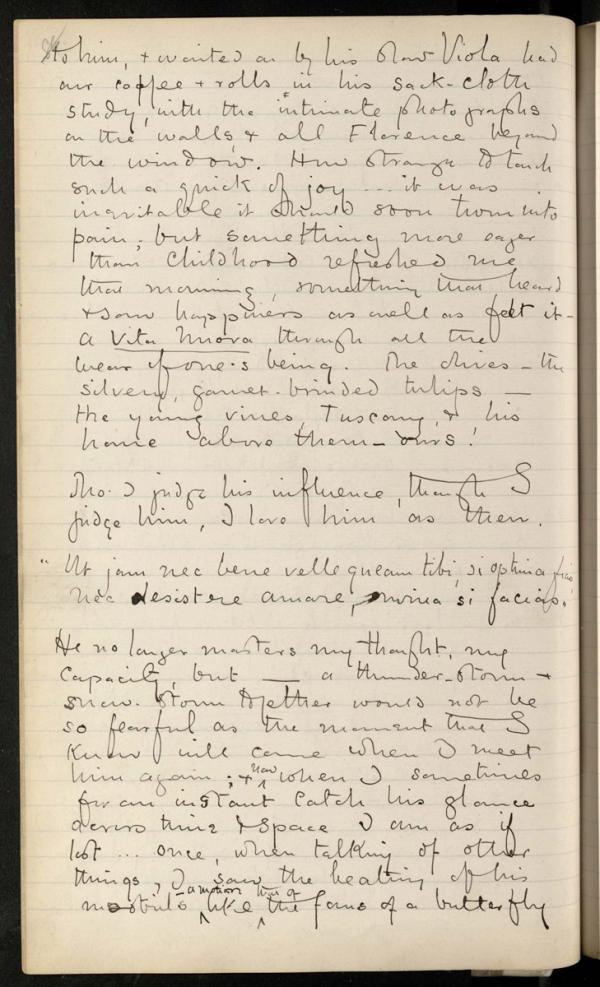 to him, & waited on by his slow Viola had
our coffee & rolls in his sack-cloth
study, with the intimate photographs
on the walls, & all Florence beyond
the window. How strange to touch
such a quick of joy ... it was
inevitable it should soon turn into
pain; but something more eager
than childhood refreshed me
that morning, something that heard
& saw happiness as well as felt it –
a Vita Nuova through all the
wear of one's being. The olives – the
silvery, garnet-brinded tulips —
the young vines, Tuscany, & his
home above them – ours!
Tho' I judge his influence, though I
judge him, I love him as then.
"Ut jam nec bene velle queam tibi, si optima fias,
nec desistere amare, omnia si facias.
He no longer masters my thought, my
capacity, but — a thunder-storm &
snow-storm together would not be
so fearful as the moment that I
know will come when I meet
him again; & now when I sometimes
for an instant catch his glance
across time & space I am as if
lost ... once, when talking of other
things, I saw the beating of his
nostrils – a motion like that of the fans of a butterfly